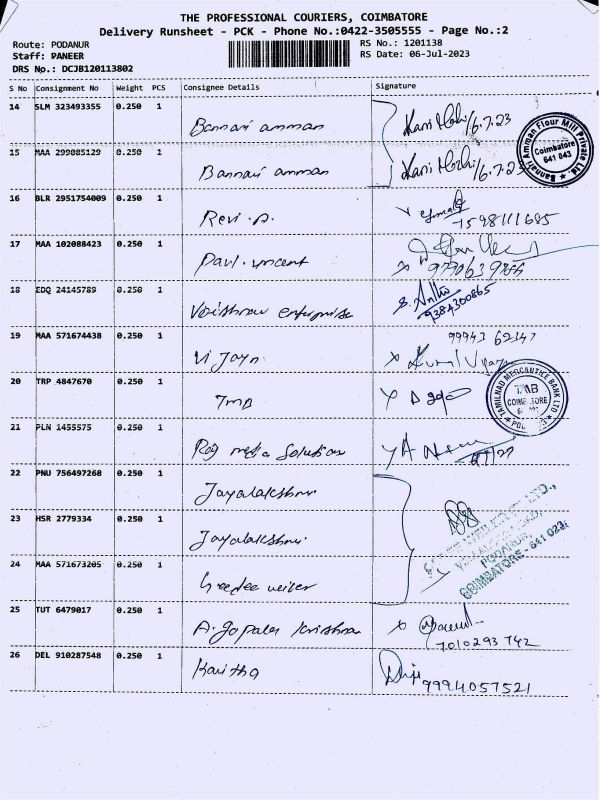 THE PROFESSIONAL COURIERS, COIMBATORE
Delivery Runsheet - PCK - Phone No.:0422-3505555 - Page No.:2
Route: PODANUR
Staff: PANEER
DRS No.: DCJB120113802
RS No.: 1201138
RS Date: 06-Jul-2023
S No Consignment No Weight PCS Consignee Details Signature
14 SLM 323493355 0.250 1 Bannari amman 16.7.23
15 MAA 299085129 0.250 1 Bannari amman
Bannari Amman Flour Mill Private Ltd.
Coimbatore
641 043
16 BLR 2951754009 0.250 1 Revi. A.
17 MAA 102088423 0.250 1 Paul. vincent
18 EDQ 24145789 0.250 1 Vaishnav enterprise
9384300865
19 MAA 571674438 0.250 1 Vijayn 99943 62347
20 TRP 4847670 0.250 1 TMB
TAMILNAD MERCANTILE BANK LTD
TMB
COIMBATORE
21 PLN 1455575 0.250 1 Raj media Solution
22 PNU 756497268 0.250 1 Jayalakshmi
23 HSR 2779334 0.250 1 Jayalakshmi
24 MAA 571673205 0.250 1
PODANUR,
COIMBATORE - 641 023
25 TUT 6479017 0.250 1 A. gopala krishnan
7010293742
26 DEL 910287548 0.250 1 Kavitha
9994057521